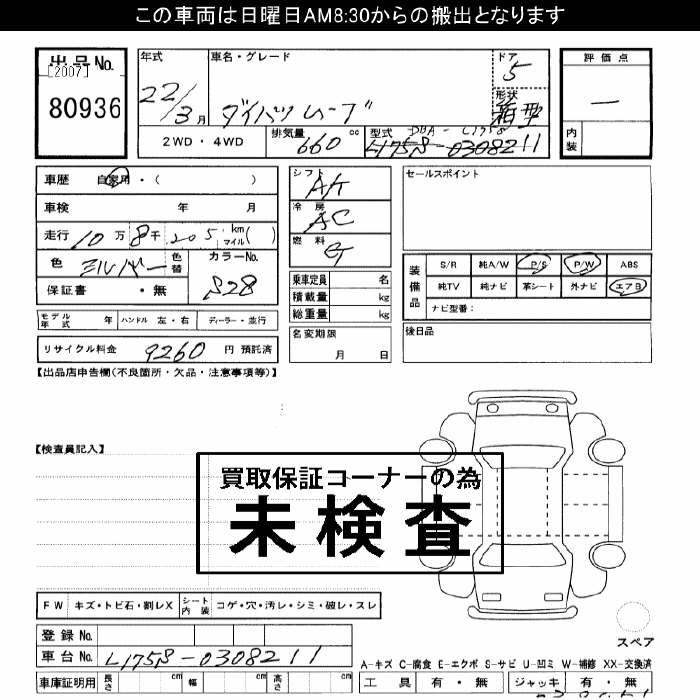 この車両は日曜日AM8:30からの搬出となります
出品No.
[2007]
80936
年式
22/3月
車名・グレード
ダイハツムーブ
ドア
5
形状
箱型
評価点
―
内装
2WD・4WD
排気量
660 cc
型式
DBA-L175S
L175S-0308211
車歴 自家用・( )
車検 年 月
走行 10万 8千 205 km マイル ( )
色 シルバー 色替
カラーNo.
S28
保証書 ・無
シフト
AT
冷房
AC
燃料
G
乗車定員 名
積載量 kg
総重量 kg
名変期限
月 日
セールスポイント
装備品
S/R 純A/W P/S P/W ABS
純TV 純ナビ 革シート 外ナビ エアB
ナビ型番:
後日品
モデル年式 年 ハンドル 左・右 ディーラー・並行
リサイクル料金 9260 円 預託済
【出品店申告欄(不良箇所・欠品・注意事項等)】
【検査員記入】
買取保証コーナーの為
未検査
FW キズ・トビ石・割レX シート内装 コゲ・穴・汚レ・シミ・破レ・スレ
登録No.
車台No. L175S-0308211
車庫証明用 長さ cm 幅 cm 高さ cm
スペア
A-キズ C-腐食 E-エクボ S-サビ U-凹ミ W-補修 XX-交換済
工具 有・無 ジャッキ 有・無